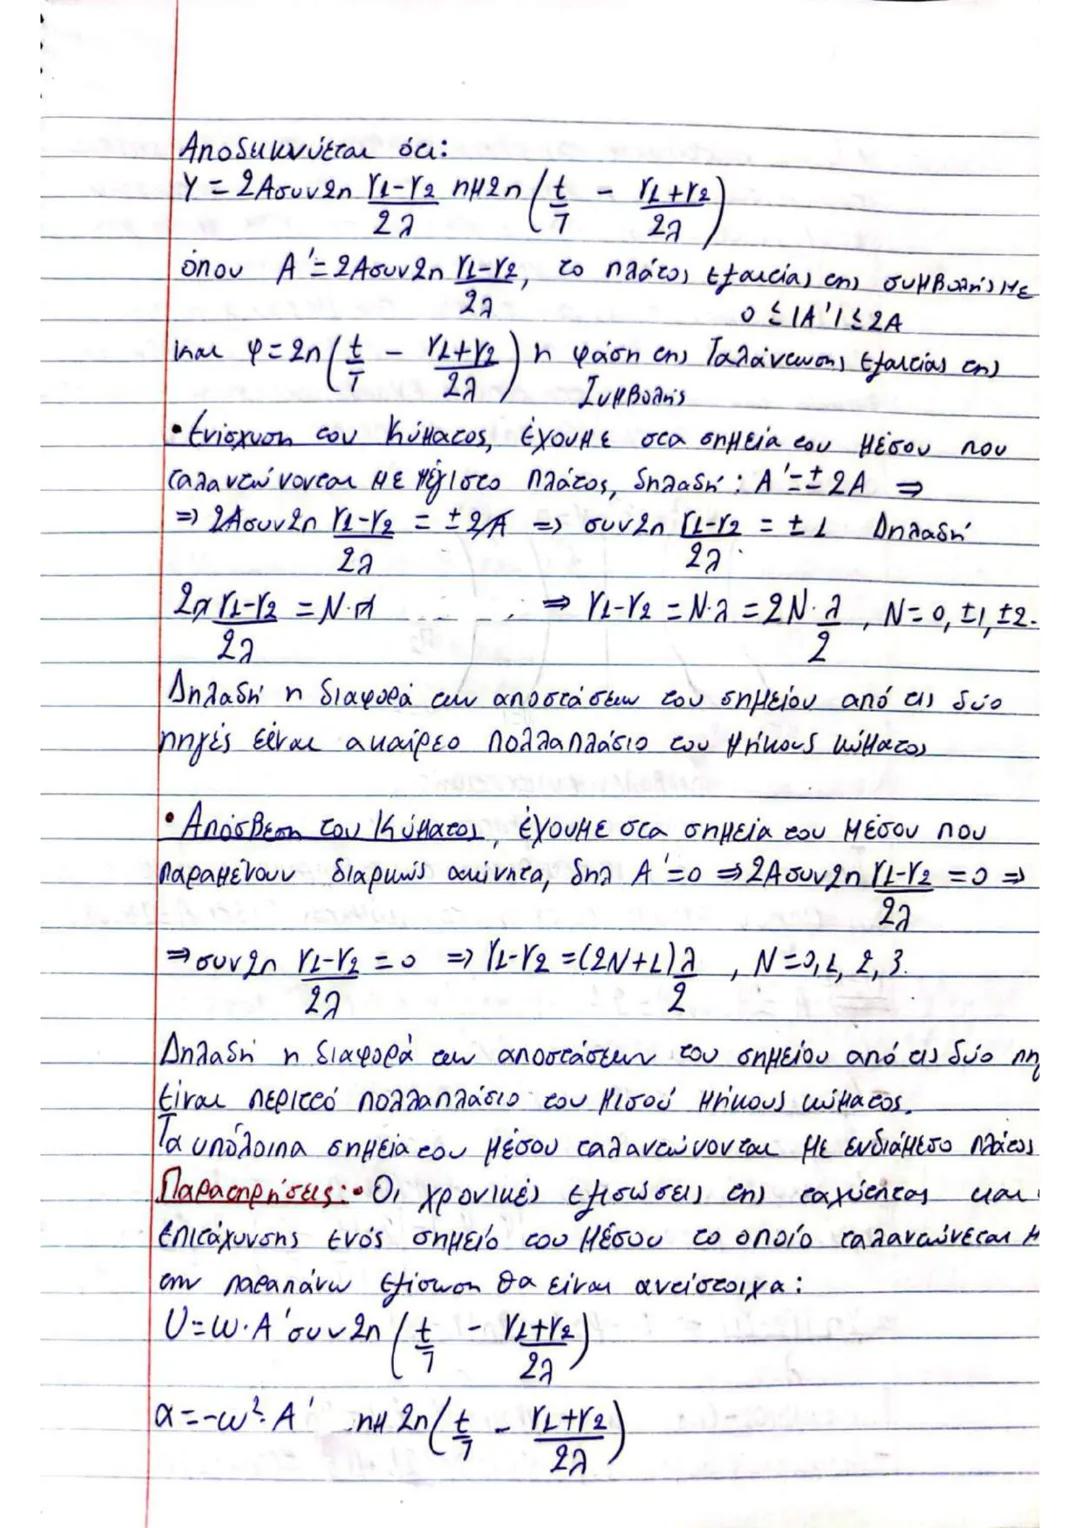 Αποδεικνύεται ότι:
Y = 2Aσυν2π (r1-r2)/2λ ημ2π (t/T - (r1+r2)/2λ)
όπου A' = 2Aσυν2π (r1-r2)/2λ, το πλάτος εξαιτίας της συμβολής με
0 ≤ |A'| ≤ 2A
και φ = 2π (t/T - (r1+r2)/2λ) η φάση της Ταλάντωσης εξαιτίας της
Συμβολής
• Ενίσχυση του Κύματος, έχουμε στα σημεία του μέσου που
ταλαντώνονται με μέγιστο πλάτος, δηλαδή: A' = ± 2A ⇒
⇒ 2Aσυν2π (r1-r2)/2λ = ± 2A ⇒ συν2π (r1-r2)/2λ = ± 1 Δηλαδή
2π (r1-r2)/2λ = N·π ⇒ r1-r2 = N·λ = 2N·λ/2, N = 0, ±1, ±2.
Δηλαδή η διαφορά των αποστάσεων του σημείου από τις δύο
πηγές είναι ακαίρεο πολλαπλάσιο του μήκους κύματος
• Απόσβεση του Κύματος, έχουμε στα σημεία του μέσου που
παραμένουν διαρκώς ακίνητα, δηλ A' = 0 ⇒ 2Aσυν2π (r1-r2)/2λ = 0 ⇒
⇒ συν2π (r1-r2)/2λ = 0 ⇒ r1-r2 = (2N+1)λ/2, N = 0, 1, 2, 3.
Δηλαδή η διαφορά των αποστάσεων του σημείου από τις δύο πη
είναι περιττό πολλαπλάσιο του μισού μήκους κύματος.
Τα υπόλοιπα σημεία του μέσου ταλαντώνονται με ενδιάμεσο πλάτος
Παρατηρήσεις: • Οι χρονικές εξισώσεις της ταχύτητας και
επιτάχυνσης ενός σημείο του μέσου το οποίο ταλαντώνεται μ
την παραπάνω εξίσωση θα είναι αντίστοιχα:
U = ω·A'συν2π (t/T - (r1+r2)/2λ)
α = -ω²·A' ημ2π (t/T - (r1+r2)/2λ)